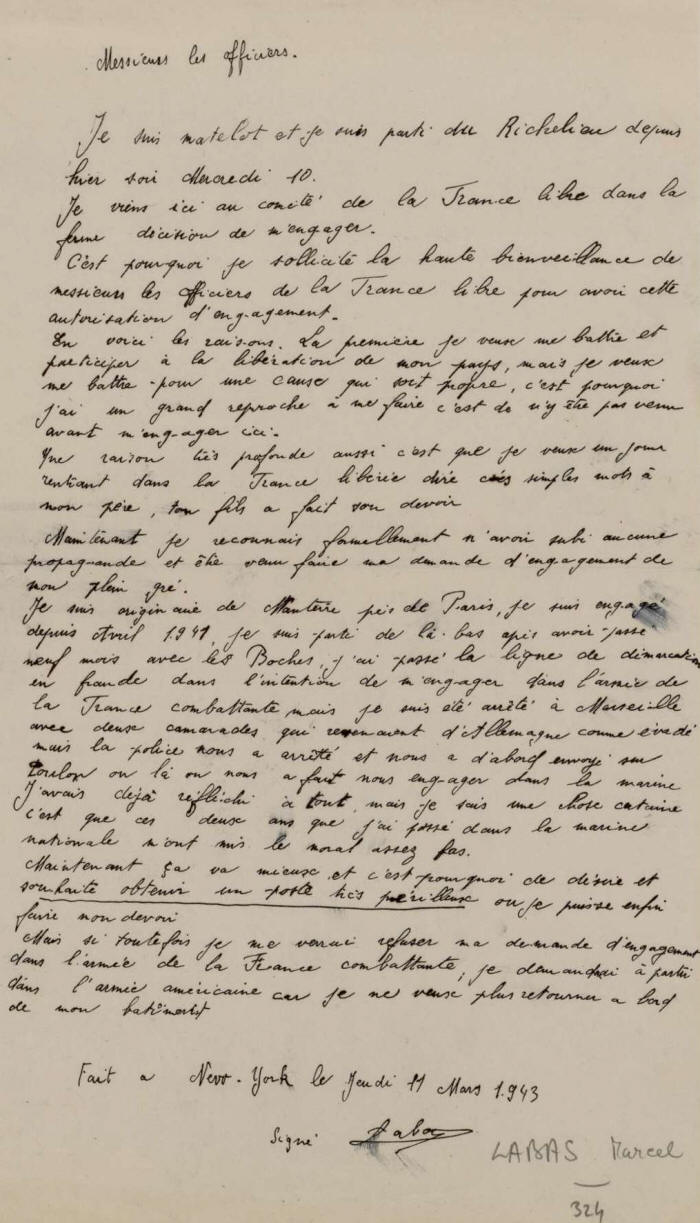 Messieurs les officiers.
Je suis matelot et je suis parti du Richelieu depuis
hier soir Mercredi 10.
Je viens ici au comité de la France libre dans la
ferme décision de m'engager.
C'est pourquoi je sollicite la haute bienveillance de
messieurs les officiers de la France libre pour avoir cette
autorisation d'engagement.
En voici les raisons. La première je veux me battre et
participer à la libération de mon pays, mais je veux
me battre pour une cause qui soit propre, c'est pourquoi
j'ai un grand reproche à me faire c'est de n'y être pas venu
avant m'engager ici.
Une raison très profonde aussi c'est que je veux un jour
rentrant dans la France libérée dire ces simples mots à
mon père, ton fils a fait son devoir
Maintenant je reconnais formellement n'avoir subi aucune
propagande et être venu faire ma demande d'engagement de
mon plein gré.
Je suis originaire de Nanterre près de Paris, je suis engagé
depuis Avril 1941, je suis parti de là-bas après avoir passé
neuf mois avec les Boches, j'ai passé la ligne de démarcation
en fraude dans l'intention de m'engager dans l'armée de
la France combattante mais je suis été arrêté à Marseille
avec deux camarades qui revenaient d'Allemagne comme évadé
mais la police nous a arrêté et nous a d'abord envoyé sur
Toulon ou là on nous a fait nous engager dans la marine
J'avais déjà réfléchi à tout, mais je sais une chose certaine
c'est que ces deux ans que j'ai passé dans la marine
nationale m'ont mis le moral assez bas.
Maintenant ça va mieux et c'est pourquoi je désire et
souhaite obtenir un poste très périlleux ou je puisse enfin
faire mon devoir
Mais si toutefois je me verrai refuser ma demande d'engagement
dans l'armée de la France combattante, je demandrai à partir
dans l'armée américaine car je ne veux plus retourner a bord
de mon batîment
Fait a New-York le Jeudi 11 Mars 1943
Signé Labas
LABAS Marcel
324